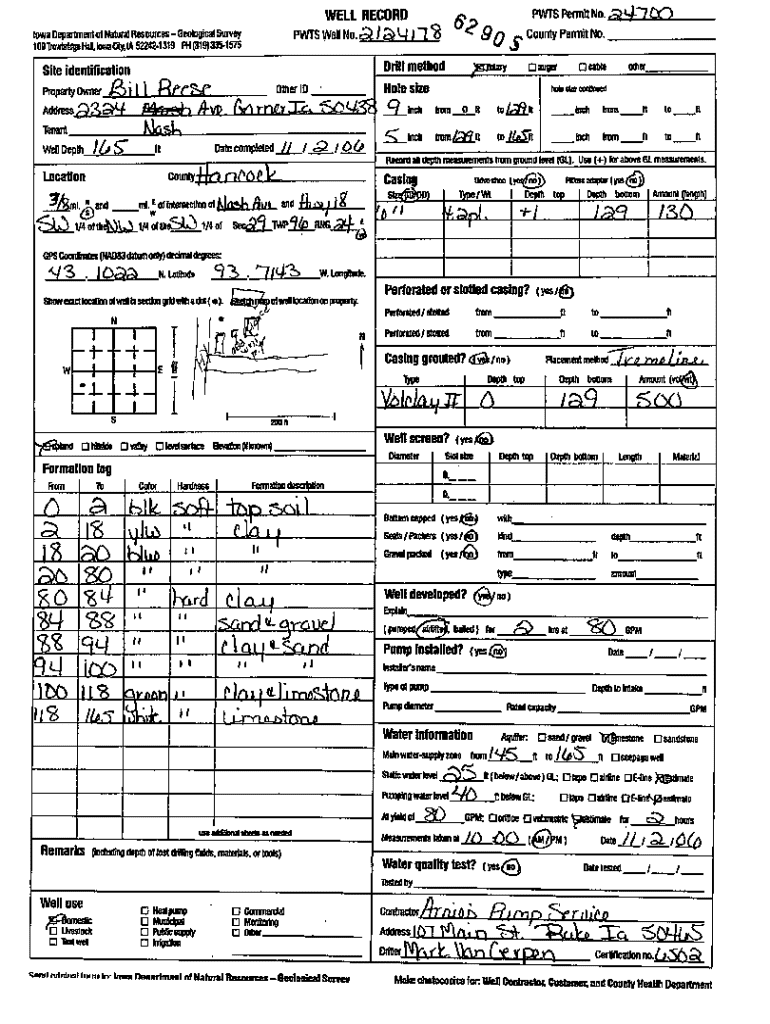 WELL RECORD
PWTS Permit No. 24700
Iowa Department of Natural Resources – Geological Survey
109 Trowbridge Hall, Iowa City, IA 52242-1319 PH (319) 335-1575
PWTS Well No. 2124178
62905
County Permit No.
Site identification
Property Owner Bill Reese Other ID
Address 2324 Ave Garner Ia 50438
Nash
Tenant
Well Depth 165 ft Date completed 11/2/06
Location County Hancock
3/8 mi. N S and mi. E W of intersection of Nash Ave and Hwy 18
SW 1/4 of the NW 1/4 of the SW 1/4 of Sec 29 TWP 96 RNG 24
GPS Coordinates (NAD83 datum only) decimal degrees:
43.1022 N. Latitude 93.7143 W. Longitude.
Show exact location of well in section grid with a dot (•). Sketch map of well location on property.
N
W E
S
N
200 ft
Upland Hillside valley level surface Elevation (if known)
Formation log
From To Color Hardness Formation description
0 2 blk soft top soil
2 18 ylw " clay
18 20 blue " "
20 80 " " "
80 84 " hard clay
84 88 " " sand & gravel
88 94 " " clay & sand
94 100 " " " "
100 118 green " clay & limestone
118 165 white " limestone
use additional sheets as needed
Remarks (including depth of lost drilling fluids, materials, or tools)
Well use
Domestic Heat pump Commercial
Livestock Municipal Monitoring
Test well Public supply Other
Irrigation
Drill method rotary auger cable other
Hole size hole size continued
9 inch from 0 ft to 129 ft inch from ft to ft
5 inch from 129 ft to 165 ft inch from ft to ft
Record all depth measurements from ground level (GL). Use (+) for above GL measurements.
Casing Drive shoe (yes / no) Pitless adapter (yes / no)
Size (ID/OD) Type / Wt Depth top Depth bottom Amount (length)
+1 129 130
Perforated or slotted casing? (yes / no)
Perforated / slotted from ft to ft
Perforated / slotted from ft to ft
Casing grouted? (yes / no) Placement method Tremeline
Type Depth top Depth bottom Amount (vol/wt)
Volclay II 0 129 500
Well screen? (yes / no)
Diameter Slot size Depth top Depth bottom Length Material
0.
0.
Bottom capped (yes / no) with
Seals / Packers (yes / no) kind depth ft
Gravel packed (yes / no) from ft to ft
type amount
Well developed? (yes / no)
Explain
(pumped, airlifted, bailed) for 2 hrs at 80 GPM
Pump installed? (yes / no) Date / /
Installer's name
Type of pump Depth to intake ft
Pump diameter Rated capacity GPM
Water information Aquifer: sand / gravel limestone sandstone
Main water-supply zone from 145 ft to 165 ft seepage well
Static water level 25 ft (below / above) GL; tape airline E-line estimate
Pumping water level 40 ft below GL; tape airline E-line estimate
At yield of 80 GPM; orifice volumetric estimate for 2 hours
Measurements taken at 10:00 (AM / PM) Date 11/2/06
Water quality test? (yes / no) Date tested / /
Tested by
Contractor Arnie's Pump Service
Address 107 Main St. Ia 50465
Driller Mark Van Gerpen Certification no. 6502
Send original form to: Iowa Department of Natural Resources – Geological Survey
Make photocopies for: Well Contractor, Customer, and County Health Department